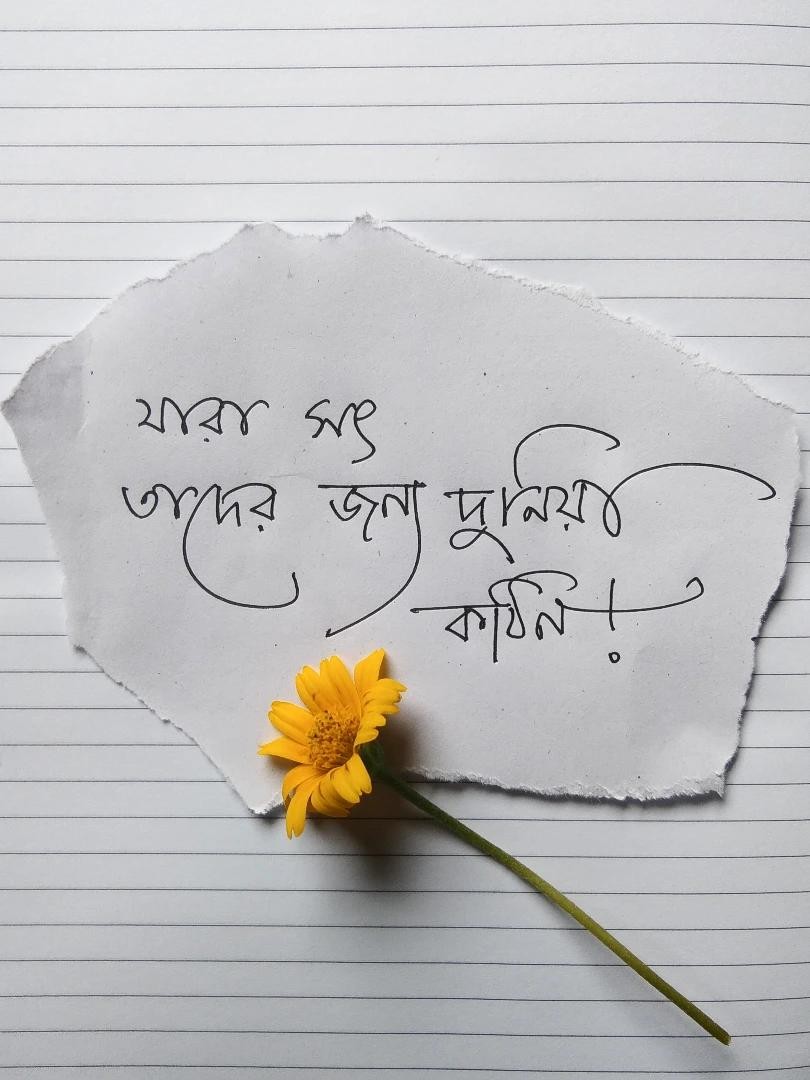 যারা সৎ
তাদের জন্য দুনিয়া
কঠিন!